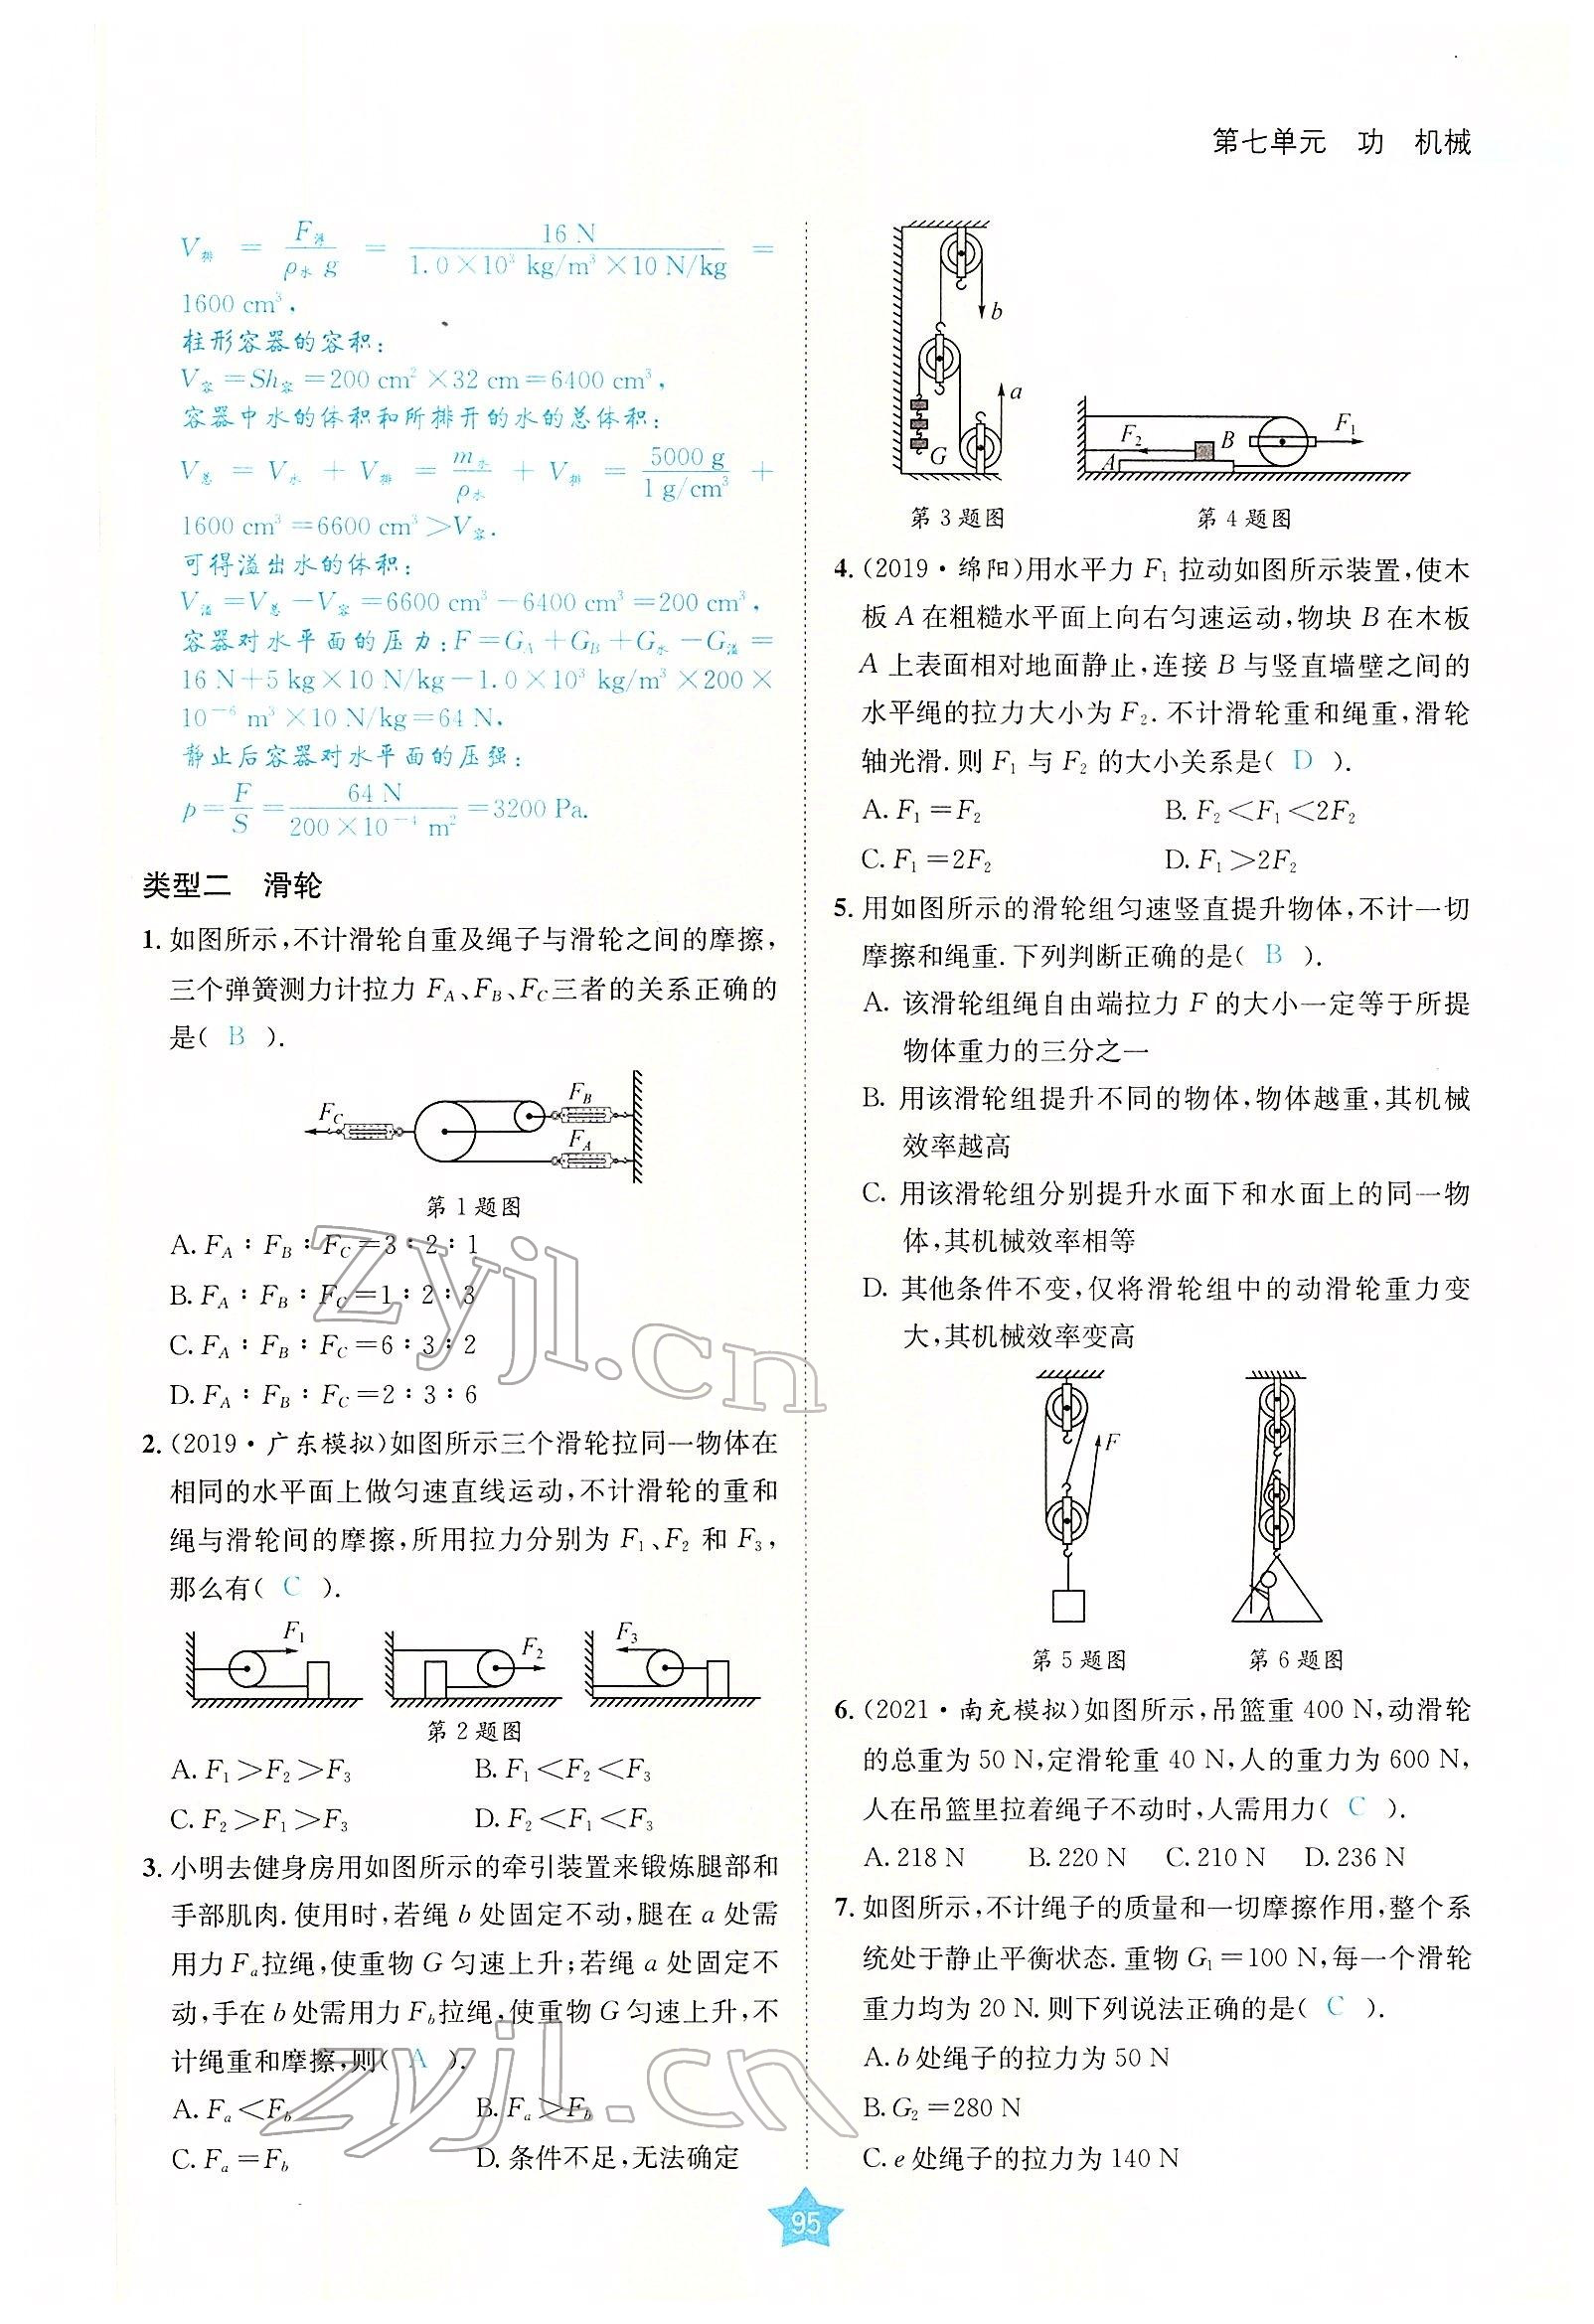 第七单元 功 机械
V排 = F浮/ρ水 g = 16 N/1.0×10³ kg/m³×10 N/kg =
1600 cm³,
柱形容器的容积:
V容=Sh容=200 cm²×32 cm=6400 cm³,
容器中水的体积和所排开的水的总体积:
V总 = V水 + V排 = m水/ρ水 + V排 = 5000 g/1 g/cm³ +
1600 cm³=6600 cm³>V容.
可得溢出水的体积:
V溢=V总-V容=6600 cm³-6400 cm³=200 cm³,
容器对水平面的压力:F=G_A+G_B+G水-G溢=
16 N+5 kg×10 N/kg-1.0×10³ kg/m³×200×
10⁻⁶ m³×10 N/kg=64 N,
静止后容器对水平面的压强:
p=F/S=64 N/200×10⁻⁴ m²=3200 Pa.
类型二 滑轮
1. 如图所示,不计滑轮自重及绳子与滑轮之间的摩擦,
三个弹簧测力计拉力 F_A、F_B、F_C三者的关系正确的
是( B ).
F_C
F_B
F_A
第1题图
A. F_A∶F_B∶F_C=3∶2∶1
B. F_A∶F_B∶F_C=1∶2∶3
C. F_A∶F_B∶F_C=6∶3∶2
D. F_A∶F_B∶F_C=2∶3∶6
2. (2019·广东模拟)如图所示三个滑轮拉同一物体在
相同的水平面上做匀速直线运动,不计滑轮的重和
绳与滑轮间的摩擦,所用拉力分别为 F₁、F₂ 和 F₃,
那么有( C ).
F₁ F₂ F₃
第2题图
A. F₁>F₂>F₃ B. F₁<F₂<F₃
C. F₂>F₁>F₃ D. F₂<F₁<F₃
3. 小明去健身房用如图所示的牵引装置来锻炼腿部和
手部肌肉. 使用时,若绳 b 处固定不动,腿在 a 处需
用力 Fₐ拉绳,使重物 G 匀速上升;若绳 a 处固定不
动,手在 b 处需用力 F_b拉绳,使重物 G 匀速上升,不
计绳重和摩擦,则( A ).
A. Fₐ<F_b B. Fₐ>F_b
C. Fₐ=F_b D. 条件不足,无法确定
b
a
G
第3题图
F₁
F₂ B
A
第4题图
4. (2019·绵阳)用水平力 F₁ 拉动如图所示装置,使木
板 A 在粗糙水平面上向右匀速运动,物块 B 在木板
A 上表面相对地面静止,连接 B 与竖直墙壁之间的
水平绳的拉力大小为 F₂. 不计滑轮重和绳重,滑轮
轴光滑. 则 F₁ 与 F₂ 的大小关系是( D ).
A. F₁=F₂ B. F₂<F₁<2F₂
C. F₁=2F₂ D. F₁>2F₂
5. 用如图所示的滑轮组匀速竖直提升物体,不计一切
摩擦和绳重. 下列判断正确的是( B ).
A. 该滑轮组绳自由端拉力 F 的大小一定等于所提
物体重力的三分之一
B. 用该滑轮组提升不同的物体,物体越重,其机械
效率越高
C. 用该滑轮组分别提升水面下和水面上的同一物
体,其机械效率相等
D. 其他条件不变,仅将滑轮组中的动滑轮重力变
大,其机械效率变高
F
第5题图 第6题图
6. (2021·南充模拟)如图所示,吊篮重 400 N,动滑轮
的总重为 50 N,定滑轮重 40 N,人的重力为 600 N,
人在吊篮里拉着绳子不动时,人需用力( C ).
A. 218 N B. 220 N C. 210 N D. 236 N
7. 如图所示,不计绳子的质量和一切摩擦作用,整个系
统处于静止平衡状态. 重物 G₁=100 N,每一个滑轮
重力均为 20 N. 则下列说法正确的是( C ).
A. b 处绳子的拉力为 50 N
B. G₂=280 N
C. e 处绳子的拉力为 140 N
95
zyjl.cn
zyjl.cn